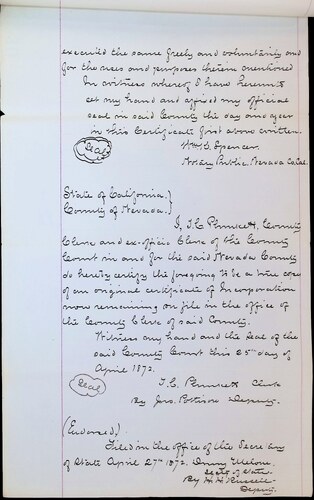 executed the same freely and voluntarily and
for the uses and purposes therein mentioned
In witness whereof I have hereunto
set my hand and affixed my official
seal in said County the day and year
in this Certificate first above written.
Seal
Wm. D. Spencer.
Notary Public, Nevada Co. Cal.
State of California. }
County of Nevada. }
I, T.C. Plunkett, County
Clerk and ex-officio Clerk of the County
Court in and for the said Nevada County
do hereby certify the foregoing to be a true copy
of an original certificate of Incorporation
now remaining on file in the office of
the County Clerk of said County.
Witness my hand and the seal of the
said County Court this 25th day of
April 1872.
Seal
T.C. Plunkett Clerk
By Jno. Pattison Deputy.
(Endorsed)
Filed in the office of the Secretary
of State April 27th 1872. Drury Melone
Secty of State
By H.H. Russell
Deputy.